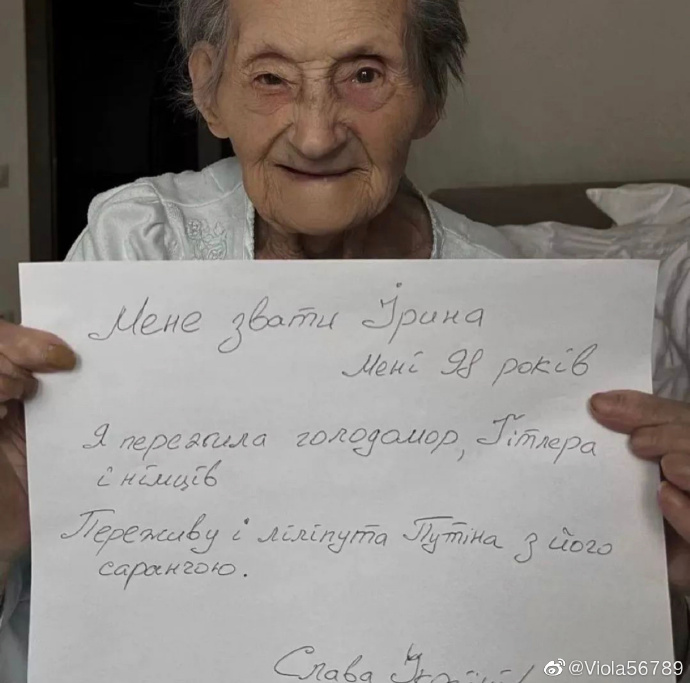 Мене звати Ірина
Мені 98 років
Я пережила голодомор, Гітлера
і німців
Переживу і ліліпута Путіна з його
саранчою.
Слава Україні!
@Viola56789